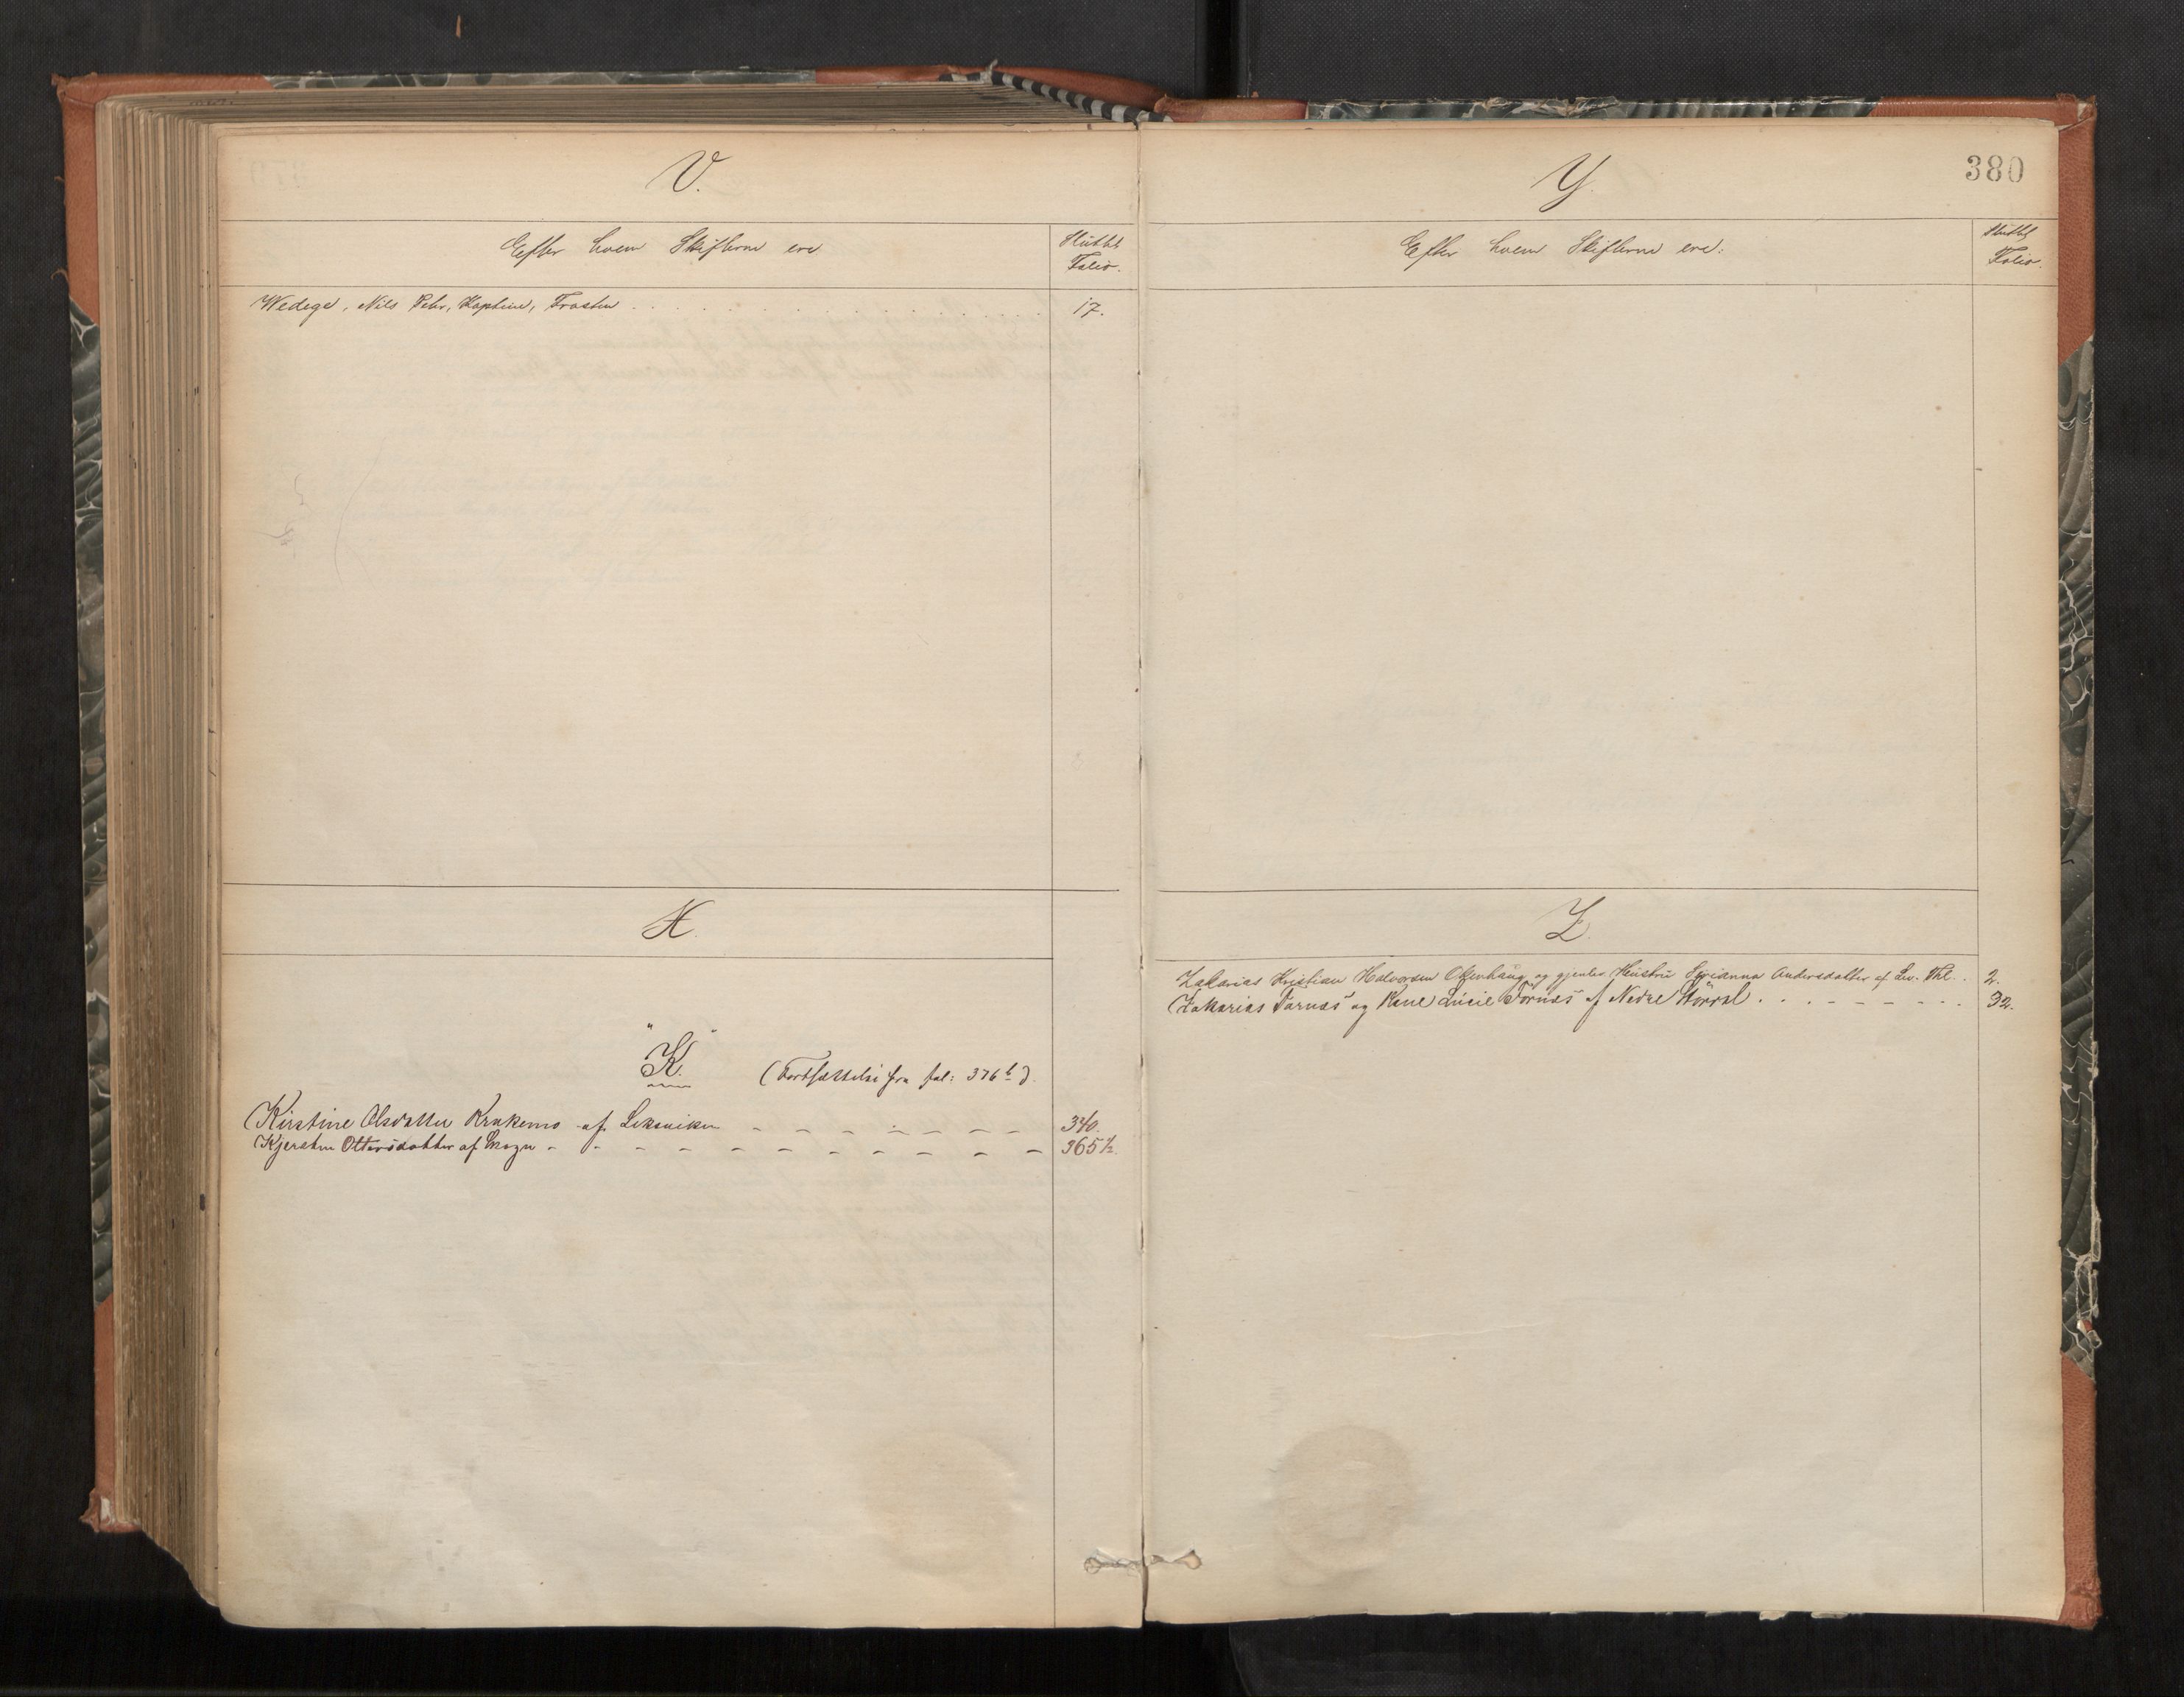 V.
Efter hvem Skifterne ere
Sluttet
Folio.
Wedege, Nils Pehr, Kaptein, Frosten . . . . . . . . . . . . 17.
X.
"K." (Fortsættelse fra fol: 376 b).
Kirstine Olsdatter Krakemo af Leksviken - - - - - - - 340.
Kjersten Ottersdatter af Skogn - - - - - - - - - - - 365 b.
380
Y.
Efter hvem Skifterne ere:
Sluttet
Folio.
Z.
Zakarias Kristian Halvorsen Okenhaug og gjenlev. Hustru Sirianna Andersdatter af Lev. Thl. . . 2.
Zakarias Tørnæs og Rane Lucie Tørnæs af Nedre Størdal . . . - - - - - . . . 32.